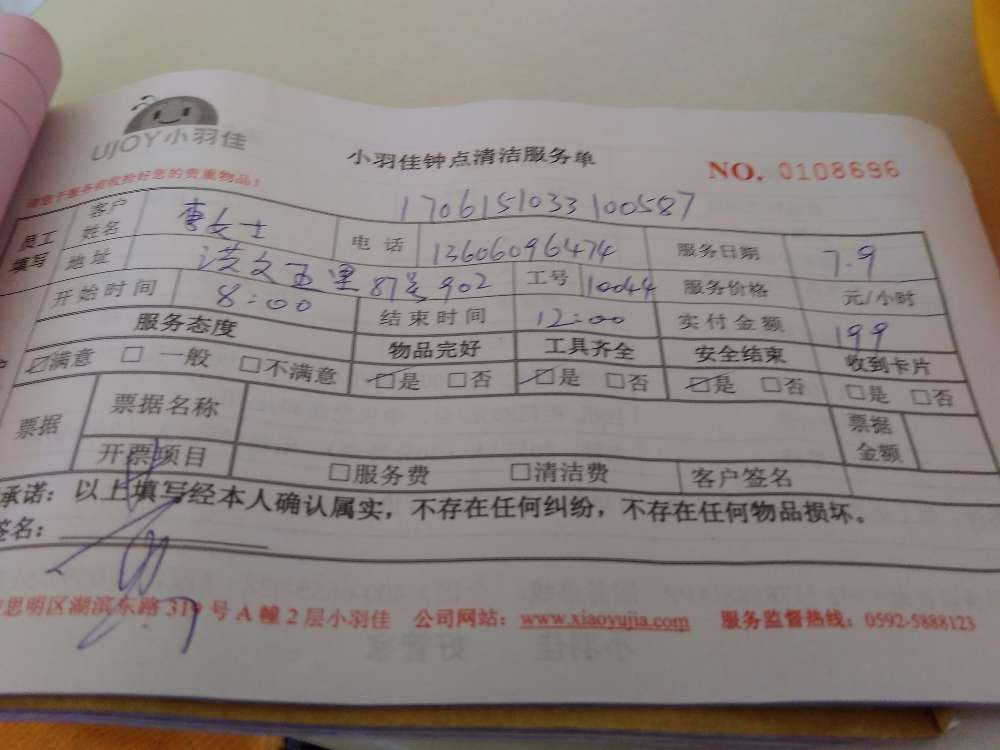 UJOY小羽佳
小羽佳钟点清洁服务单
NO. 0108696
请您于服务前收拾好您的贵重物品!
1706151033100587
员工填写 客户姓名 女士 电话 13606096474 服务日期 7.9
地址 洪文五里87号902 工号 10044 服务价格 元/小时
开始时间 8:00 结束时间 12:00 实付金额 199
服务态度 物品完好 工具齐全 安全结束 收到卡片
☑满意 □一般 □不满意 ☑是 □否 ☑是 □否 ☑是 □否 □是 □否
票据 票据名称 票据金额
开票项目 □服务费 □清洁费 客户签名
承诺：以上填写经本人确认属实，不存在任何纠纷，不存在任何物品损坏。
签名：
思明区湖滨东路319号A幢2层小羽佳 公司网站：www.xiaoyujia.com 服务监督热线：0592-5888123